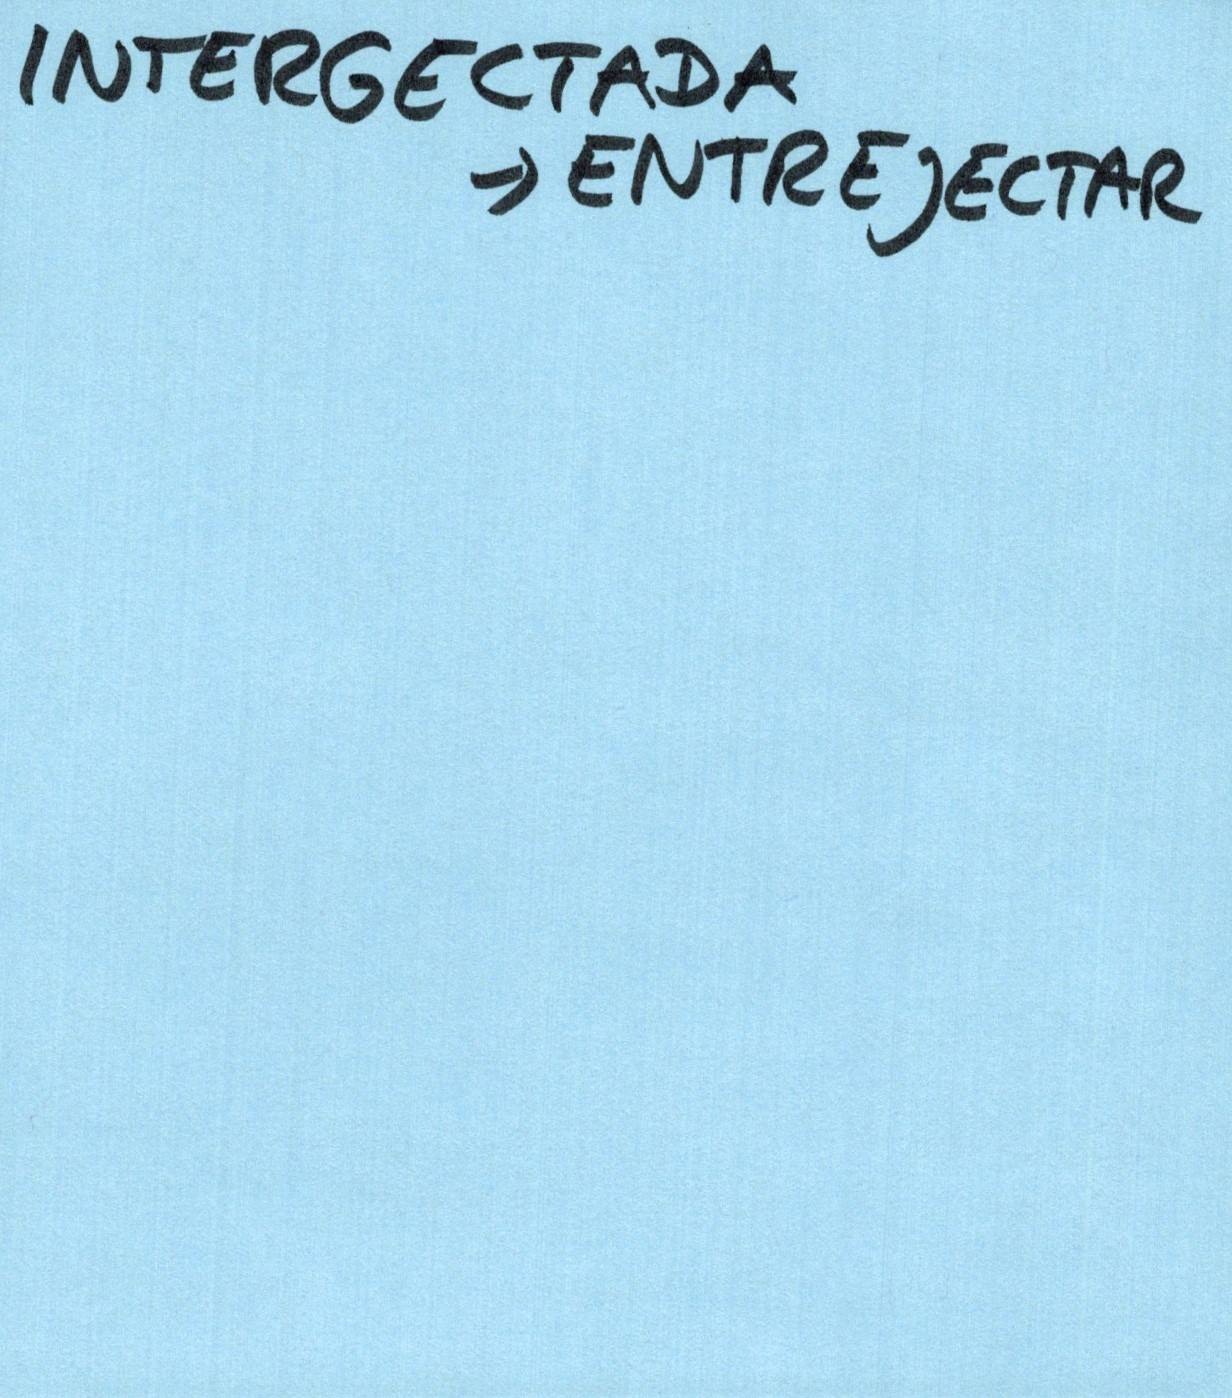 INTERGECTADA
→ ENTREJECTAR